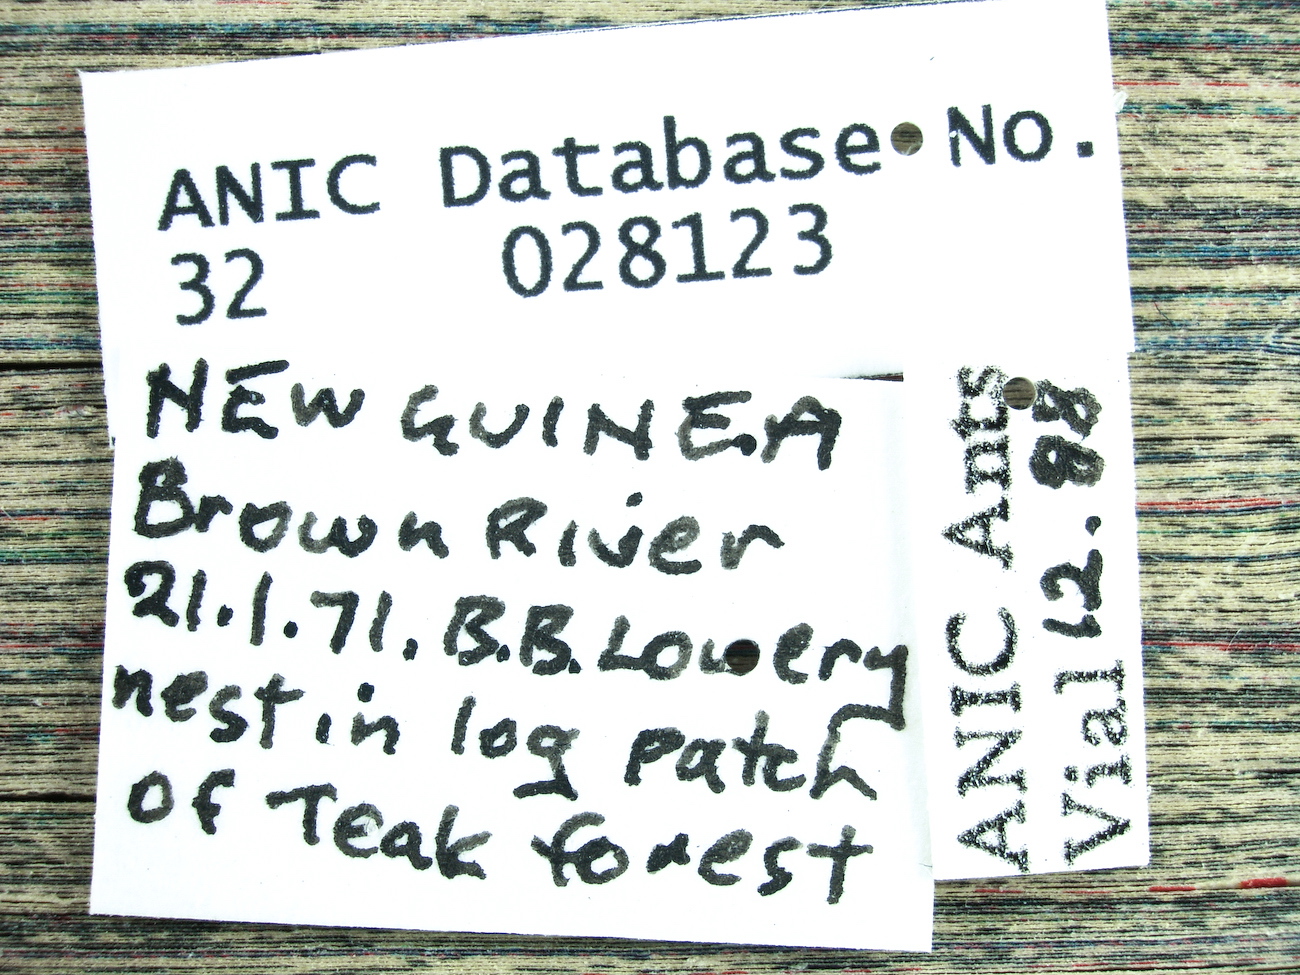 ANIC Database No.
32 028123
NEW GUINEA
Brown River
21.1.71. B.B. Lowery
nest in log patch
of Teak forest
ANIC Ants
Vial 12. 88